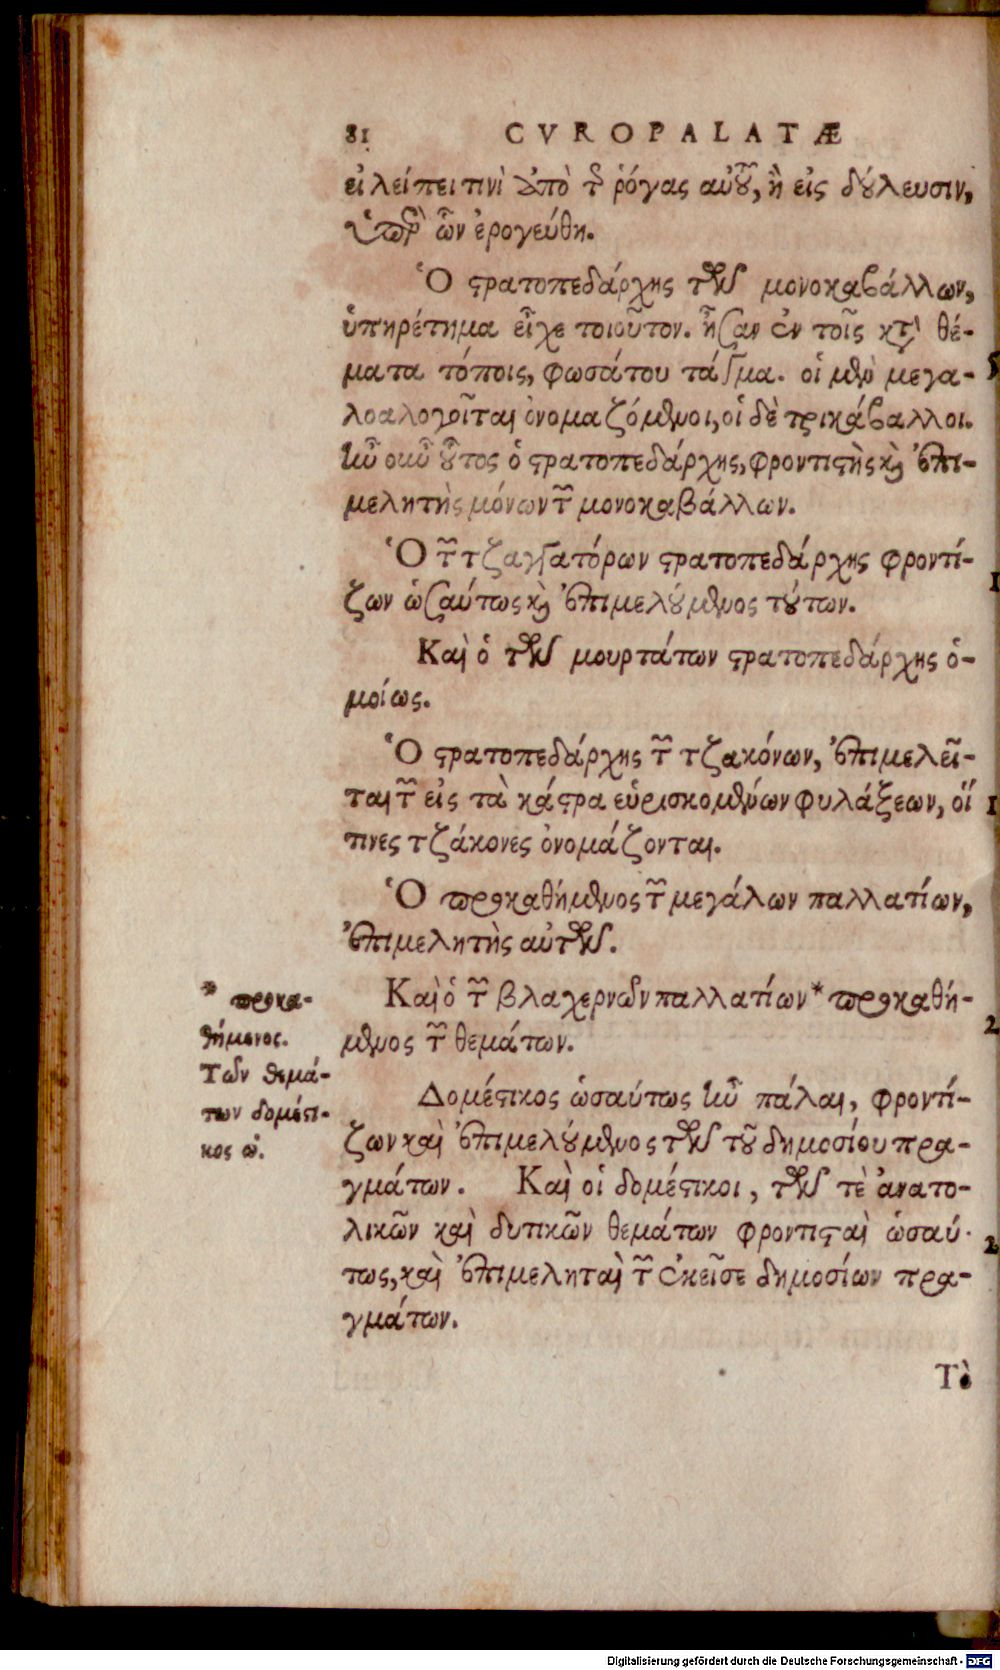 81 CVROPALATÆ
εἰ λείπει τινὶ ἀπὸ τῆς ῥόγας αὐτοῦ, ἢ εἰς δούλευσιν,
ὑπὲρ ὧν ἐρογεύθη.
Ὁ στρατοπεδάρχης τῶν μονοκαβάλλων,
ὑπηρέτημα εἶχε τοιοῦτον. ἦσαν ἐν τοῖς κατὰ θέ-
ματα τόποις, φωσάτου τάγμα. οἱ μὲν μεγα-
λοαλογῖται ὀνομαζόμενοι, οἱ δὲ τρικάβαλλοι.
ἦν οὖν οὗτος ὁ στρατοπεδάρχης, φροντιστὴς καὶ ἐπι-
μελητὴς μόνων τῶν μονοκαβάλλων.
Ὁ τῶν τζαγγατόρων στρατοπεδάρχης φροντί-
ζων ὡσαύτως καὶ ἐπιμελούμενος τούτων.
Καὶ ὁ τῶν μουρτάτων στρατοπεδάρχης ὁ-
μοίως.
Ὁ στρατοπεδάρχης τῶν τζακόνων, ἐπιμελεῖ-
ται τῶν εἰς τὰ κάστρα εὑρισκομένων φυλάξεων, οἵ
τινες τζάκονες ὀνομάζονται.
Ὁ προκαθήμενος τῶν μεγάλων παλλατίων,
ἐπιμελητὴς αὐτῶν.
Καὶ ὁ τῶν βλαχερνῶν παλλατίων * προκαθή-
μενος τῶν θεμάτων.
* προκα-
θήμενος.
Τῶν θεμά-
των δομέστι-
κος ὁ.
Δομέστικος ὡσαύτως ἦν πάλαι, φροντί-
ζων καὶ ἐπιμελούμενος τῶν τοῦ δημοσίου πρα-
γμάτων. Καὶ οἱ δομέστικοι, τῶν τὲ ἀνατο-
λικῶν καὶ δυτικῶν θεμάτων φροντισταὶ ὡσαύ-
τως, καὶ ἐπιμεληταὶ τῶν ἐκεῖσε δημοσίων πρα-
γμάτων.
Τὸ
Digitalisierung gefördert durch die Deutsche Forschungsgemeinschaft - DFG